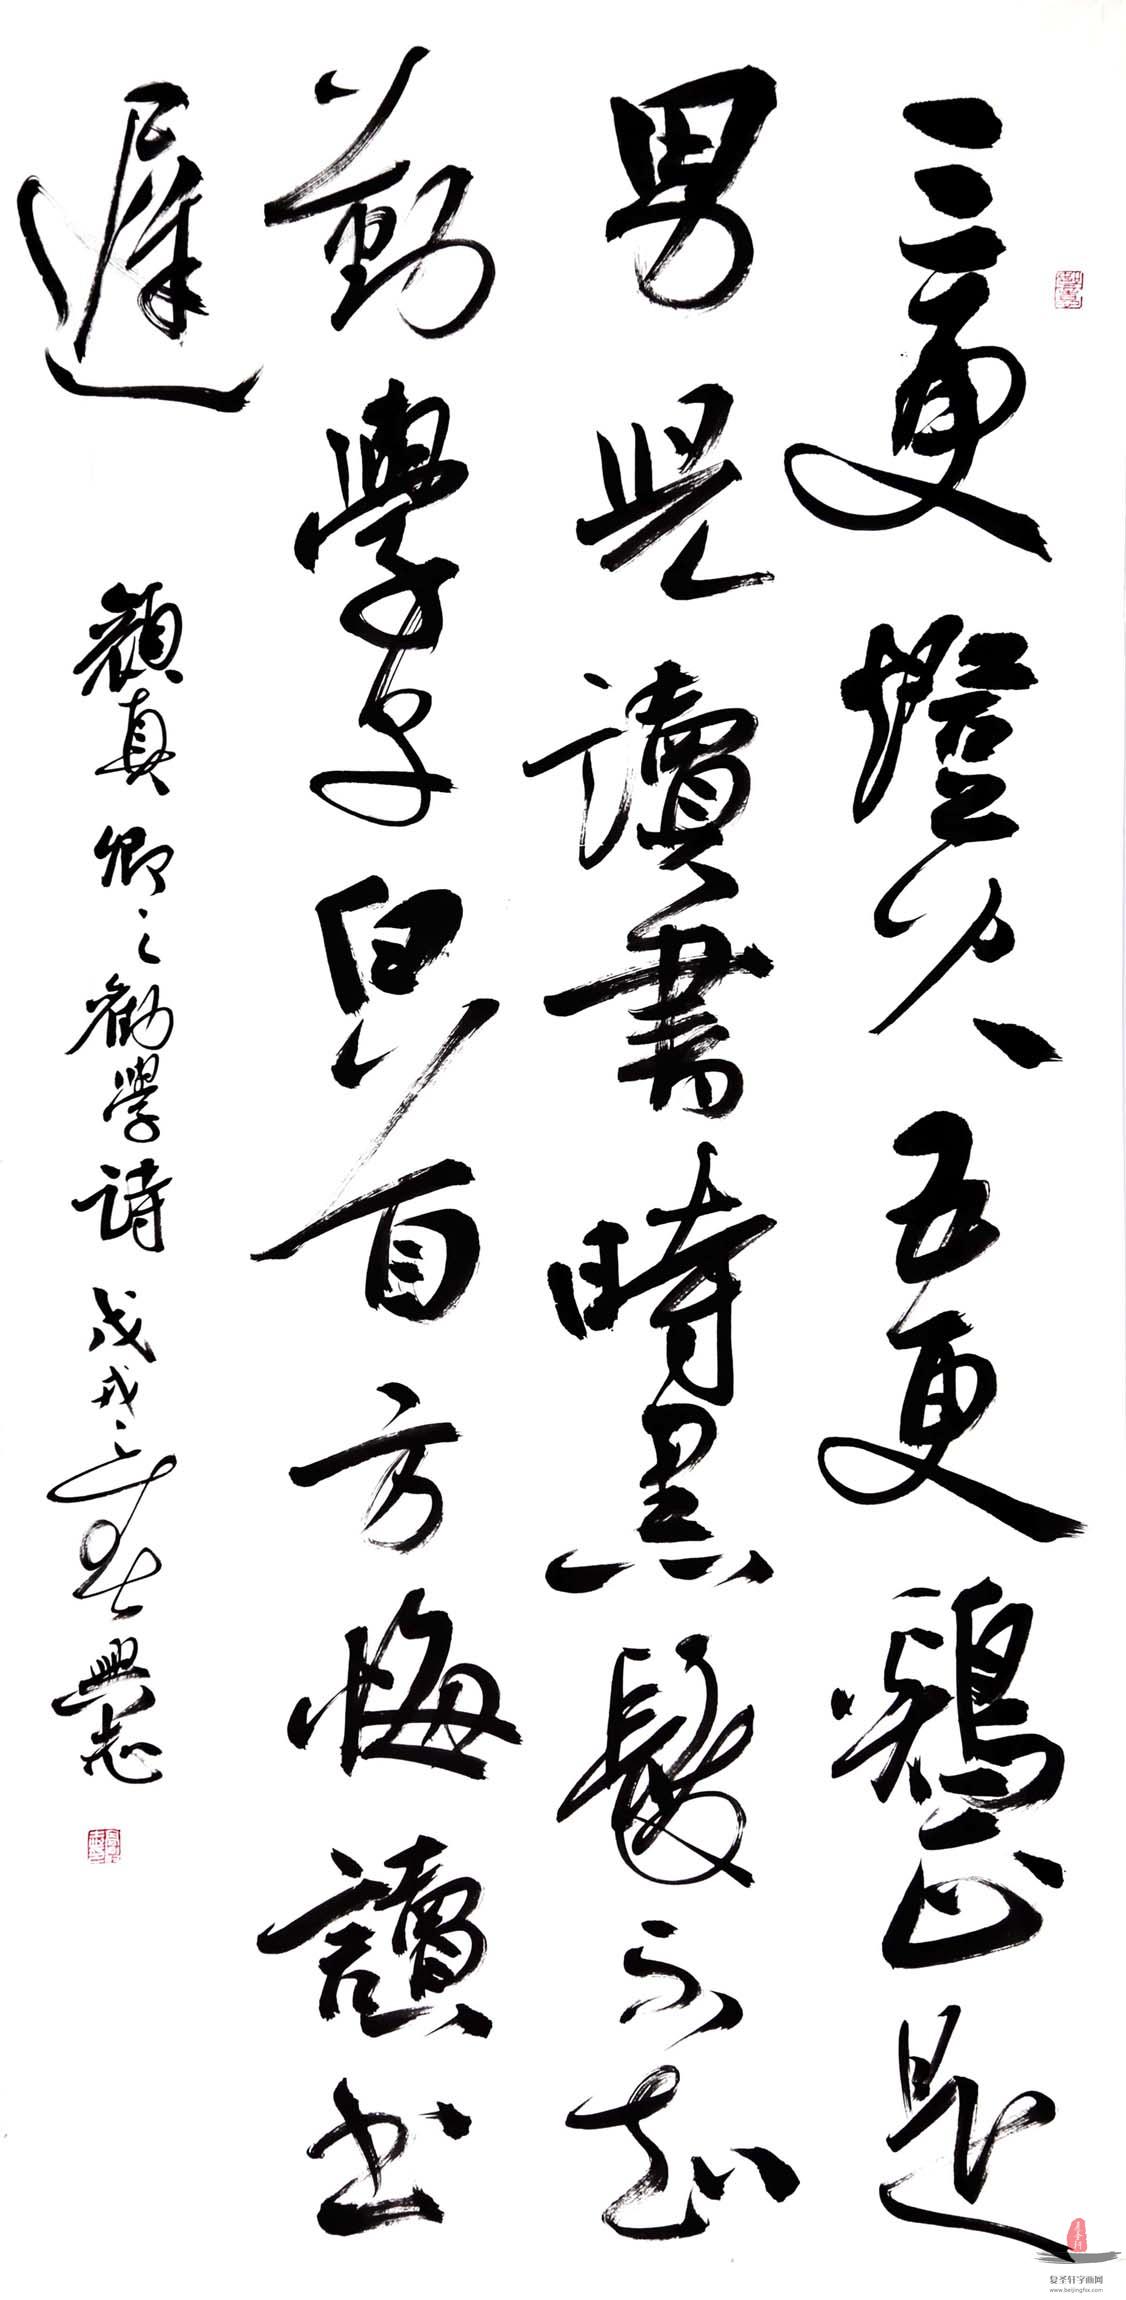 三更燈火五更鷄正是
男兒讀書時黑髮不知
勤學早白首方悔讀书
遲
顏真卿之勸學詩戊戌之春興志
复圣轩字画网